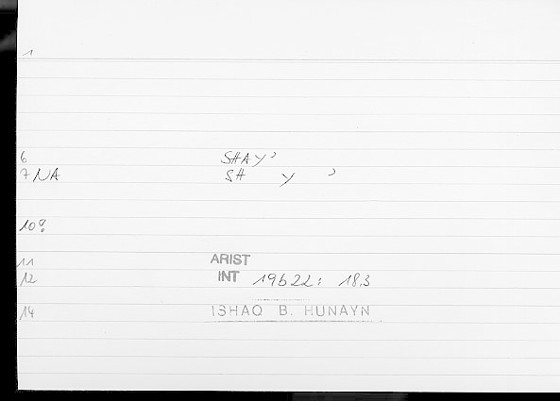 1
6 SHAY'
7/NA SH Y '
10?
11 ARIST
12 INT 19b22: 18.3
14 ISHAQ B. HUNAYN